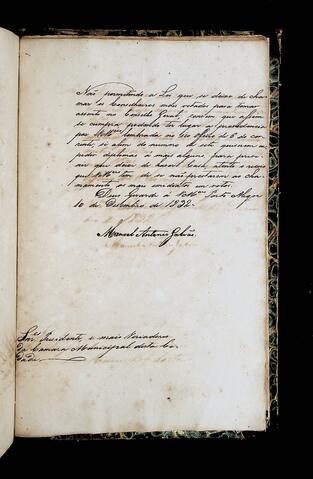 Não permetindo a Lei que se deixe de cha-
mar os Conselheiros mais votados para tomar
assento no Conselho Geral, convem que assim
se cumpra podendo ter lugar a providencia
por VMces lembrada no seo officio de 6 do cor-
rente, si alem do numero de sete quizerem ex-
pedir diplomas á mais alguns, para preve-
nir que deixe de haver Geral, attento o receio
que VMces tem de se não prestarem ao cha-
mamento os mais immediatos em votos.
Deus Guarde a VMces Porto Alegre
10 de Dezembro de 1832.
Manoel Antonio Galvão
Snrs Presidente, e mais Vereadores
da Camara Municipal desta Ci-
dade.